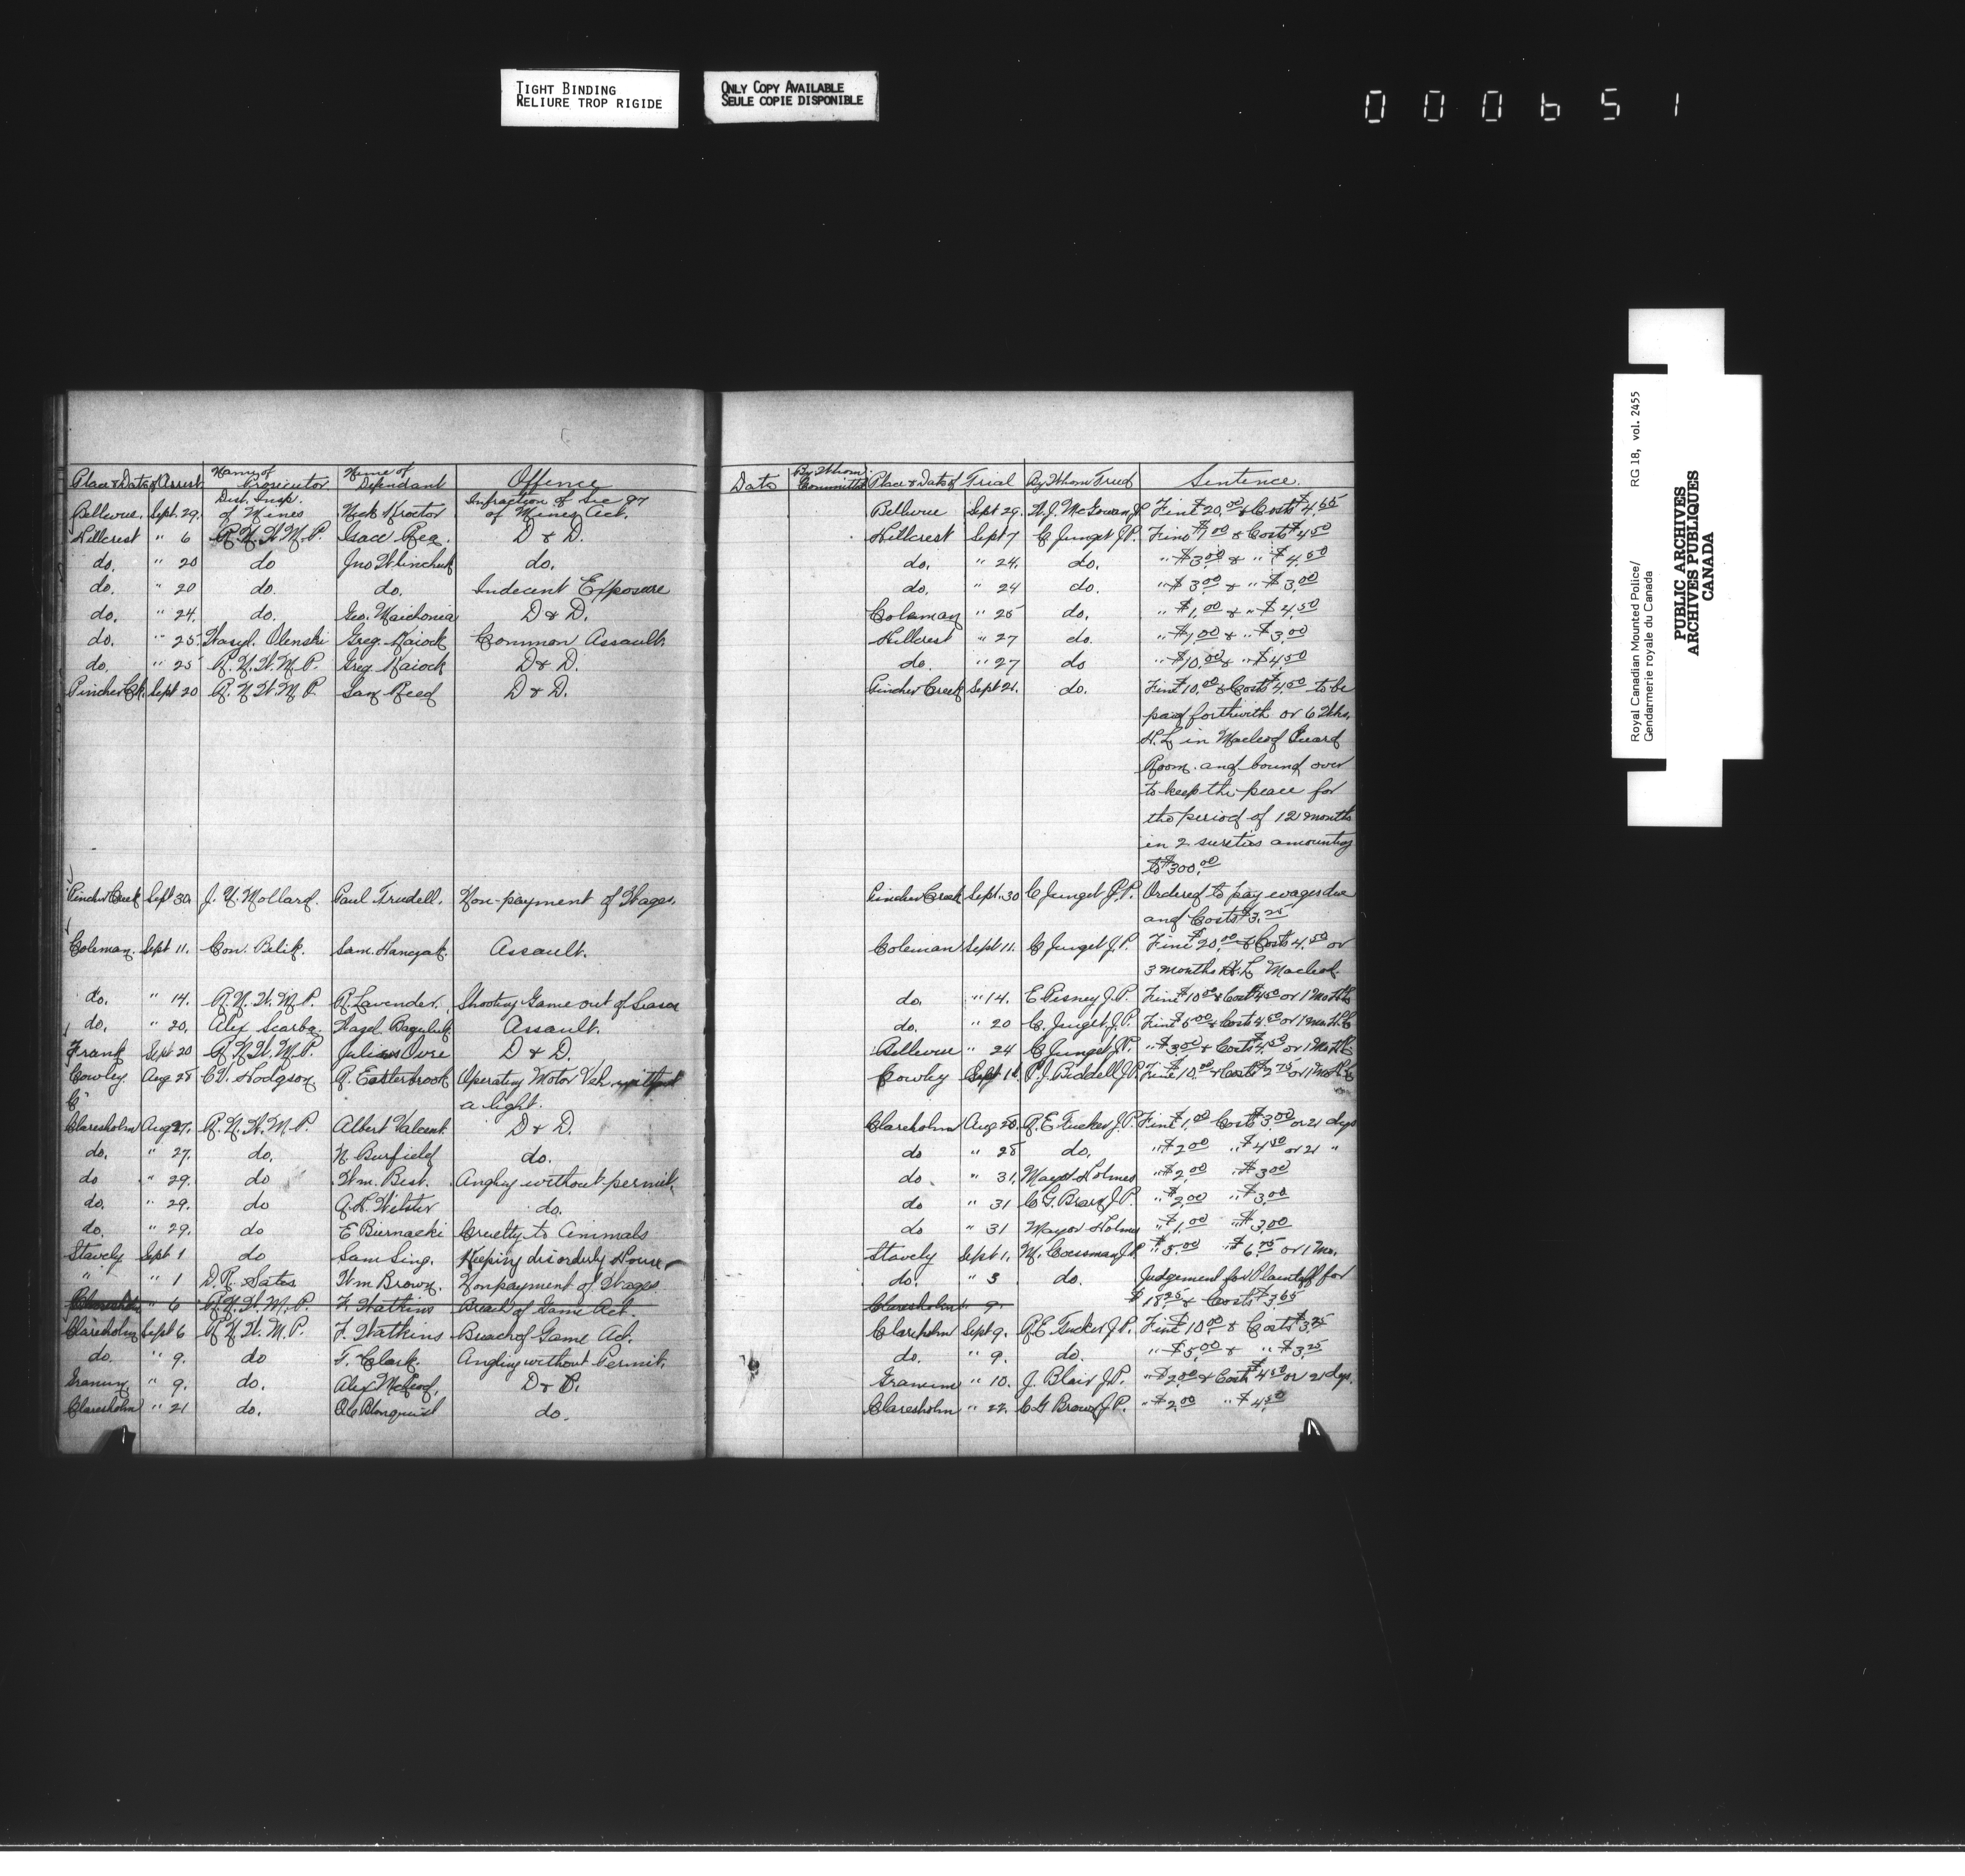 TIGHT BINDING
RELIURE TROP RIGIDE
ONLY COPY AVAILABLE
SEULE COPIE DISPONIBLE
000651
Royal Canadian Mounted Police/ RG 18, vol. 2455
Gendarmerie royale du Canada
PUBLIC ARCHIVES
ARCHIVES PUBLIQUES
CANADA
Place & Date of Arrest Name of Prosecutor Name of Defendant Offence Date By Whom Committed Place & Date of Trial By Whom Tried Sentence
Bellevue. Sept. 29. Dist. Insp. of Mines Nick Infraction of Sec 97 of Mines Act. Bellevue Sept 29. McGowan J.P. Fine $20.00 & Costs $4.65
Hillcrest " 6 R.N.W.M.P. Isacc D & D. Hillcrest Sept 7 C Junget J.P. Fine $7.00 & Costs $4.50
do. " 20 do Jno do. do. " 24. do. " $3.00 & " $4.50
do. " 20 do. do. Indecent Exposure do. " 24 do. " $3.00 & " $3.00
do. " 24. do. Geo. D & D. Coleman " 25 do. " $1.00 & " $4.50
do. " 25. Wasyl. Olenski Greg. Kaiock Common Assault. Hillcrest " 27 do. " $1.00 & " $3.00
do. " 25 R.N.W.M.P. Greg. Kaiock D & D. do. " 27 do " $10.00 & " $4.50
Pincher Ck. Sept 20 R.N.W.M.P. Reed D & D. Pincher Creek Sept 21. do. Fine $10.00 & Costs $4.00 to be
paid forthwith or 6 Wks.
H.L in Macleod Guard
Room. and bound over
to keep the peace for
the period of 12 months
in 2 sureties amounting
to $300.00
Pincher Creek Sept 30. Mollard. Paul Trudell. Non-payment of Wages. Pincher Creek Sept. 30 C Junget J.P. Ordered to pay wages due
and Costs $3.25
Coleman. Sept 11. Con. Bilik. Sam. Assault. Coleman Sept 11. C Junget J.P. Fine $20.00 & Costs 4.50 or
3 months H.L Macleod.
do. " 14. R.N.W.M.P. R. Lavender. Shooting Game out of Season do. " 14. J.P. Fine $10.00 & Costs 4.50 or 1 Month
do. " 20. Alex Scarba. Assault. do. " 20 C. Junget J.P. Fine $5.00 & Costs 4.50 or 1 mo. H.L
Frank Sept 20 R.N.W.M.P. D & D. Bellevue " 24 C Junget J.P. " $3.00 & Costs $4.50 or 1 Mo H.L
Cowley. Aug 28 Hodgson R. Easterbrook Operating Motor Veh without Cowley Sept 1 P.J. Biddell J.P. Fine $10.00 & Costs $2.75 or 1 Mo H.L
a light.
Claresholm Aug 27. R.N.W.M.P. Albert D & D. Claresholm Aug 28. R.E Tucker J.P. Fine $1.00 Costs $3.00 or 21 dys
do. " 27. do. N. Burfield do. do " 28 do. " $2.00 " $4.50 or 21 "
do " 29. do Wm. Best. Angling without permit. do. " 31. Mayor Holmes " $2.00 " $3.00
do. " 29. do Webster do. do " 31 C G. Brown J.P. " $2.00 " $3.00
do. " 29. do E Biernacki Cruelty to Animals do " 31 Mayor Holmes " $1.00 " $3.00
Stavely Sept 1 do Sam Sing. Keeping disorderly House Stavely Sept 1. J.P " $5.00 " $6.75 or 1 Mo.
" " 1 D.R. Sates Wm Brown. Nonpayment of Wages do. " 3 do. Judgement for Plaintiff for
$18.25 & Costs $3.65
Claresholm " 6 R.N.W.M.P. F. Watkins Breach of Game Act. Claresholm 9.
Claresholm Sept 6 R.N.W.M.P. F. Watkins Breach of Game Act. Claresholm Sept 9. R.E. Tucker J.P. Fine $10.00 & Costs $3.75
do. " 9. do T. Clark. Angling without Permit. do. " 9. do. " $5.00 & " $3.25
Granum " 9. do. Alex McLeod. D & D. Granum " 10. J. Blair J.P. " $2.00 & Costs $4.50 or 21 dys.
Claresholm " 21 do. Blonquist do. Claresholm " 22. C G Brown J.P. " $2.00 " $4.50